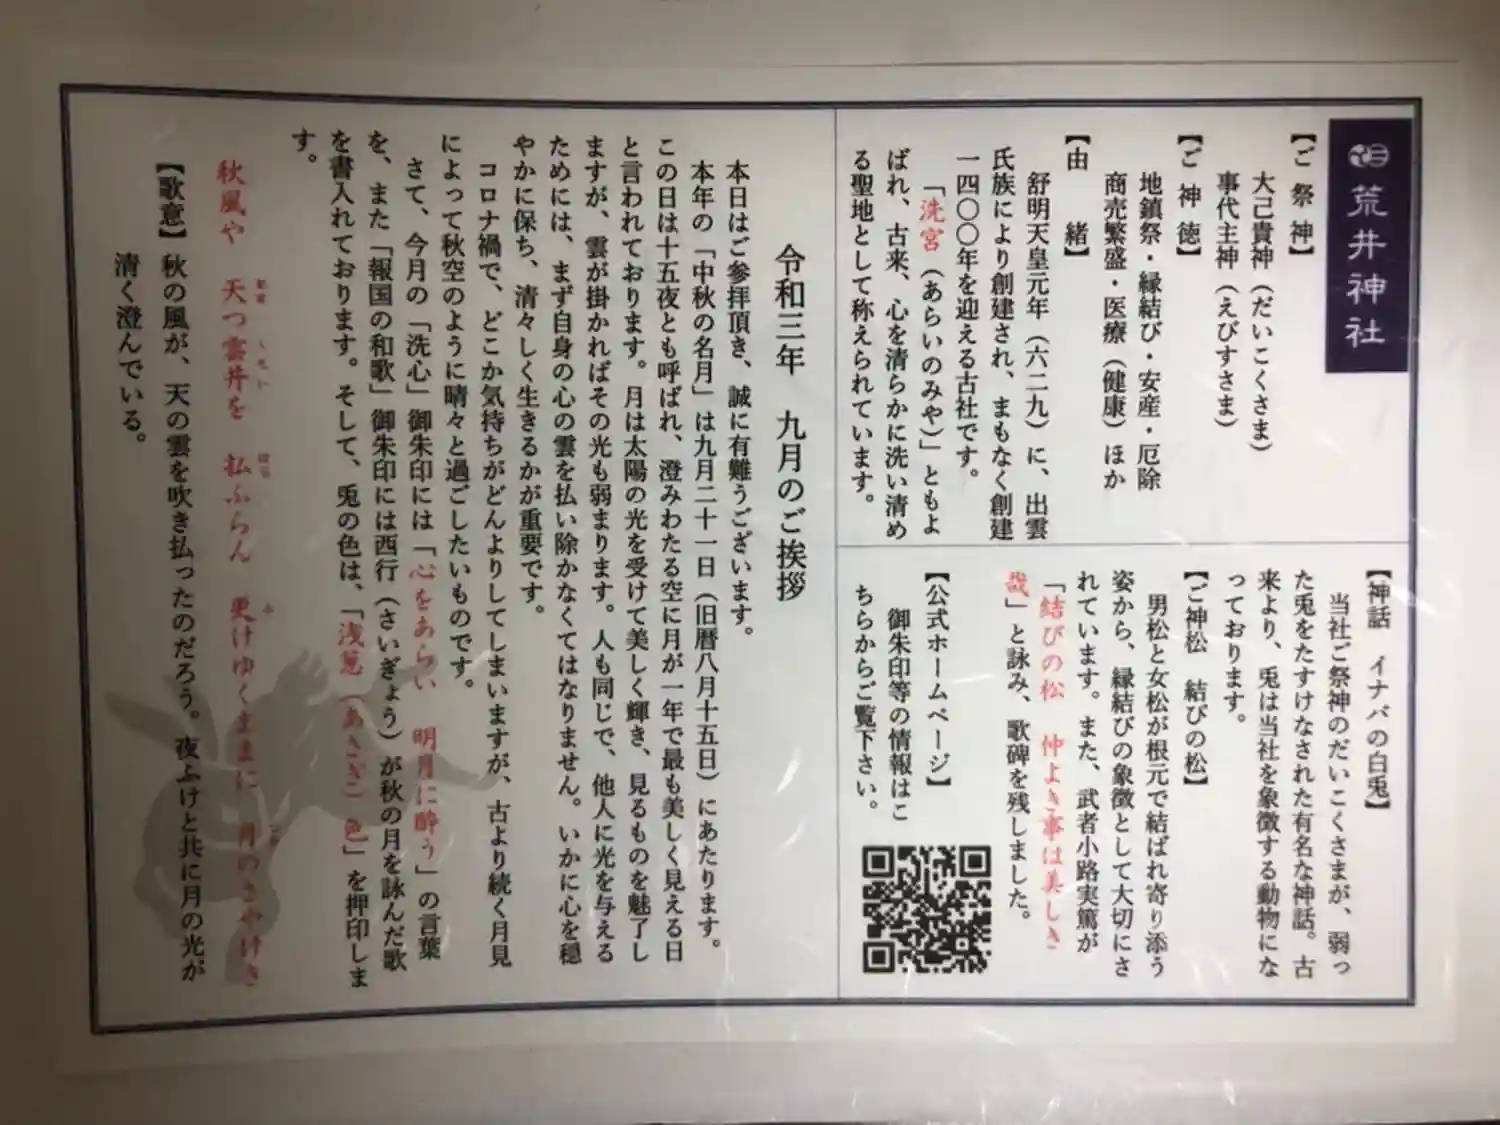 荒井神社
【ご祭神】
大己貴神（だいこくさま）
事代主神（えびすさま）
【ご神徳】
地鎮祭・縁結び・安産・厄除
商売繁盛・医療（健康）ほか
【由　緒】
舒明天皇元年（六二九）に、出雲
氏族により創建され、まもなく創建
一四〇〇年を迎える古社です。
「洗宮（あらいのみや）」ともよ
ばれ、古来、心を清らかに洗い清め
る聖地として称えられています。
【神話　イナバの白兎】
当社ご祭神のだいこくさまが、弱っ
た兎をたすけなされた有名な神話。古
来より、兎は当社を象徴する動物にな
っております。
【ご神松　結びの松】
男松と女松が根元で結ばれ寄り添う
姿から、縁結びの象徴として大切にさ
れています。また、武者小路実篤が
「結びの松　仲よき事は美しき
哉」と詠み、歌碑を残しました。
【公式ホームページ】
御朱印等の情報はこ
ちらからご覧下さい。
令和三年　九月のご挨拶
本日はご参拝頂き、誠に有難うございます。
本年の「中秋の名月」は九月二十一日（旧暦八月十五日）にあたります。
この日は十五夜とも呼ばれ、澄みわたる空に月が一年で最も美しく見える日
と言われております。月は太陽の光を受けて美しく輝き、見るものを魅了し
ますが、雲が掛かればその光も弱まります。人も同じで、他人に光を与える
ためには、まず自身の心の雲を払い除かなくてはなりません。いかに心を穏
やかに保ち、清々しく生きるかが重要です。
コロナ禍で、どこか気持ちがどんよりしてしまいますが、古より続く月見
によって秋空のように晴々と過ごしたいものです。
さて、今月の「洗心」御朱印には「心をあらい　明月に酔う」の言葉
を、また「報国の和歌」御朱印には西行（さいぎょう）が秋の月を詠んだ歌
を書入れております。そして、兎の色は、「浅葱（あさぎ）色」を押印しま
す。
秋風や　天つ雲井を　払ふらん　更けゆくままに　月のさやけき
【歌意】秋の風が、天の雲を吹き払ったのだろう。夜ふけと共に月の光が
清く澄んでいる。